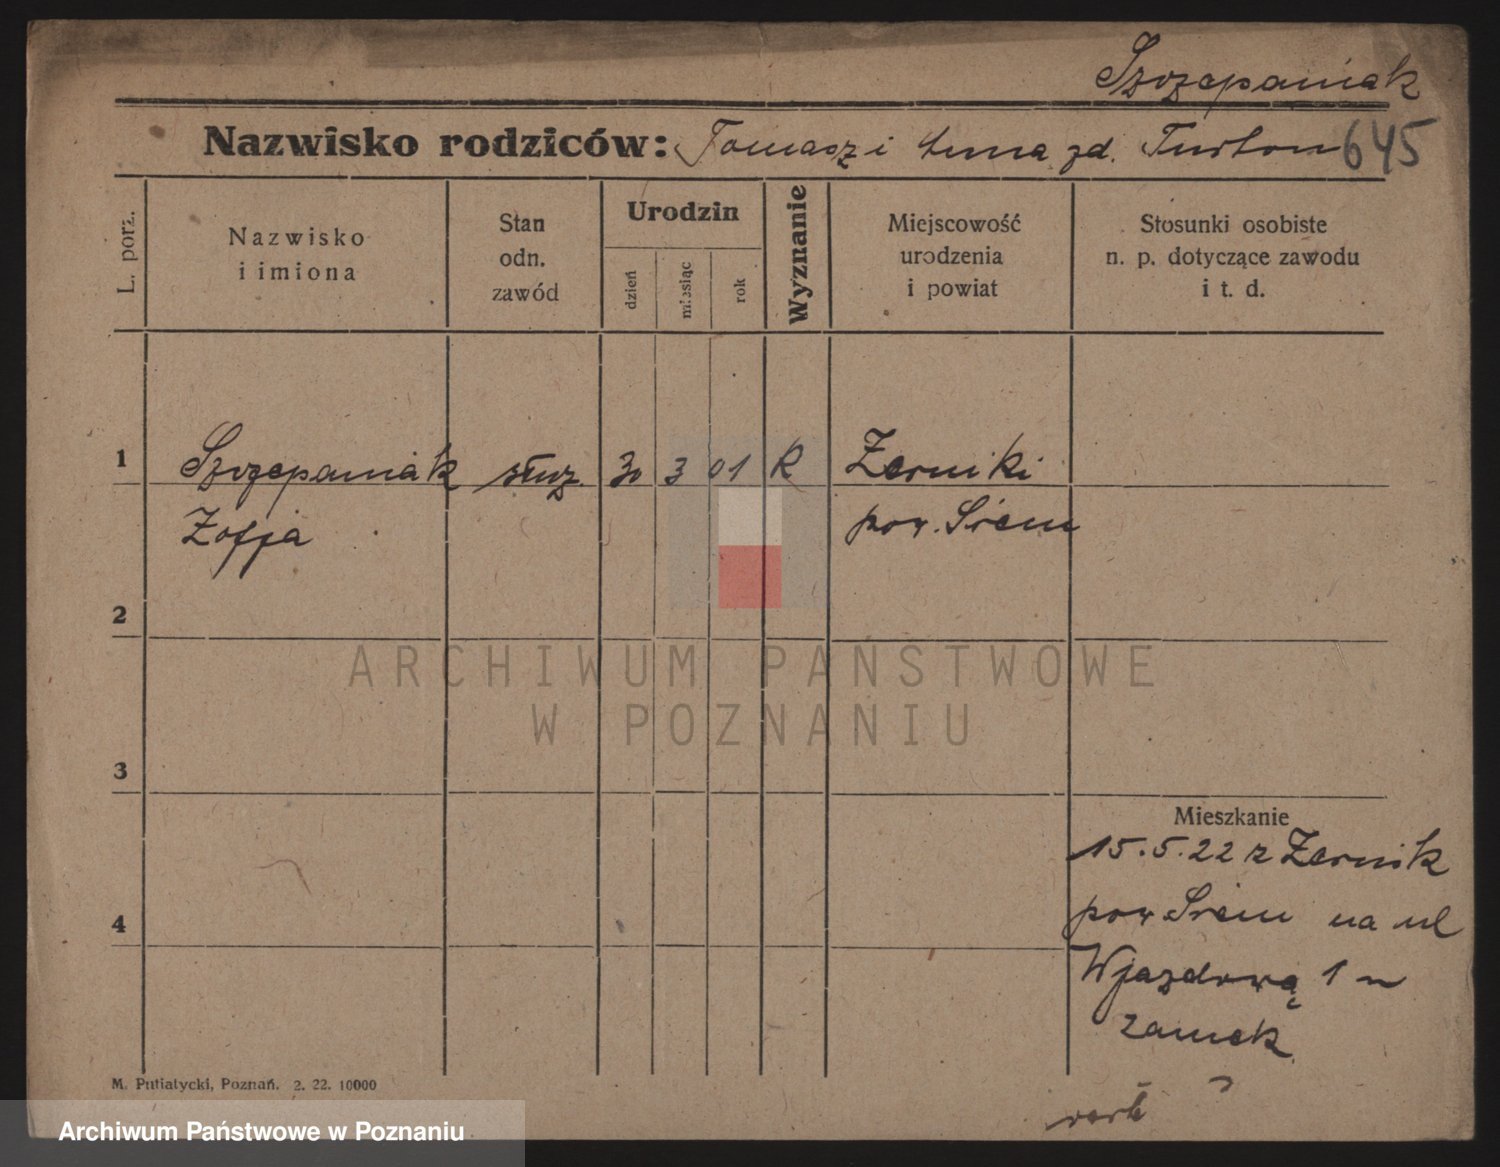 Szczepaniak
Nazwisko rodziców: Tomasz i Anna zd. 645
L. porz.
Nazwisko
i imiona
Stan
odn.
zawód
Urodzin
dzień
miesiąc
rok
Wyznanie
Miejscowość
urodzenia
i powiat
Stosunki osobiste
n. p. dotyczące zawodu
i t. d.
1 Szczepaniak służ. 30 3 01 K Żerniki
Zofja pow. Śrem
2
3
4
Mieszkanie
15.5.22 z Żernik
pow Śrem na ul
Wjazdową 1
zamek
M. Putiatycki, Poznań. 2. 22. 10000
ARCHIWUM PAŃSTWOWE
W POZNANIU
Archiwum Państwowe w Poznaniu